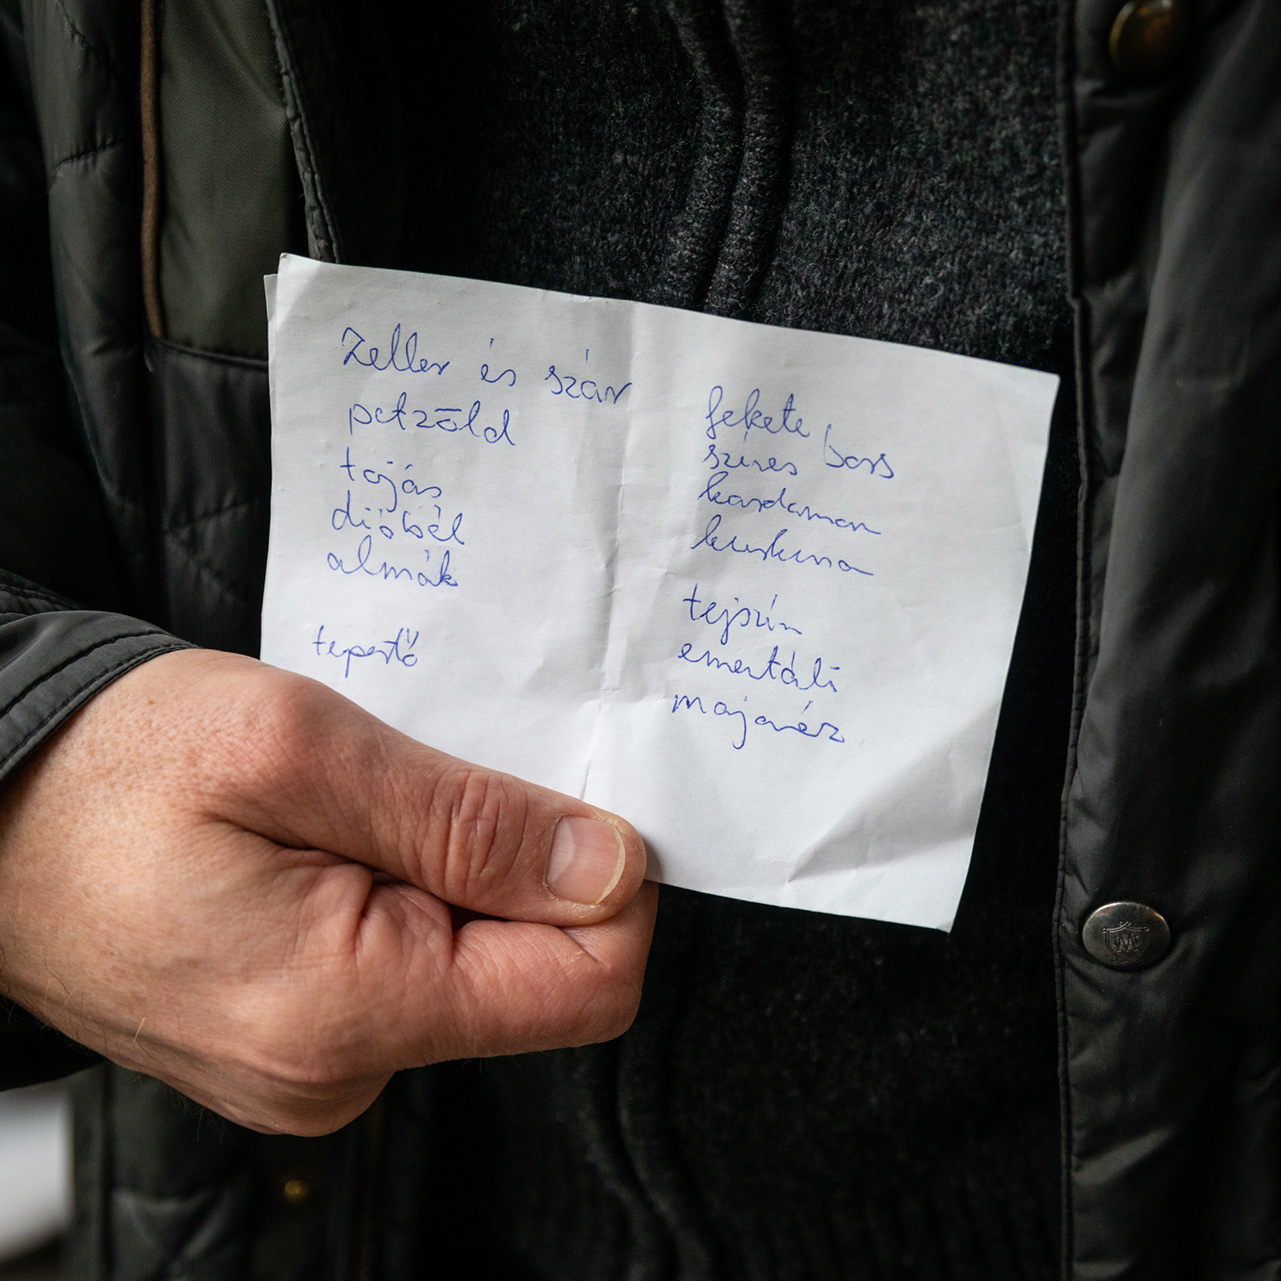 Zeller és szár
petzőld
tojás
dióbél
almák
tepertő
fekete bors
színes
kardamon
kurkuma
tejszín
ementáli
majonéz